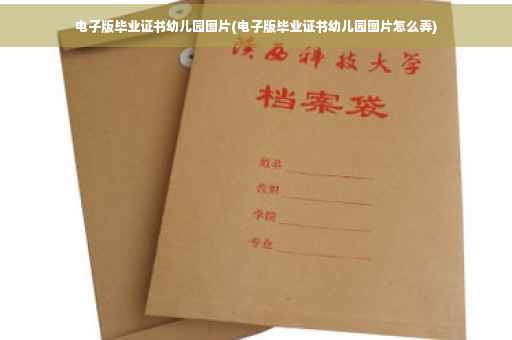 电子版毕业证书幼儿园图片(电子版毕业证书幼儿园图片怎么弄)
陕西科技大学
档案袋
姓名
性别
学院
专业